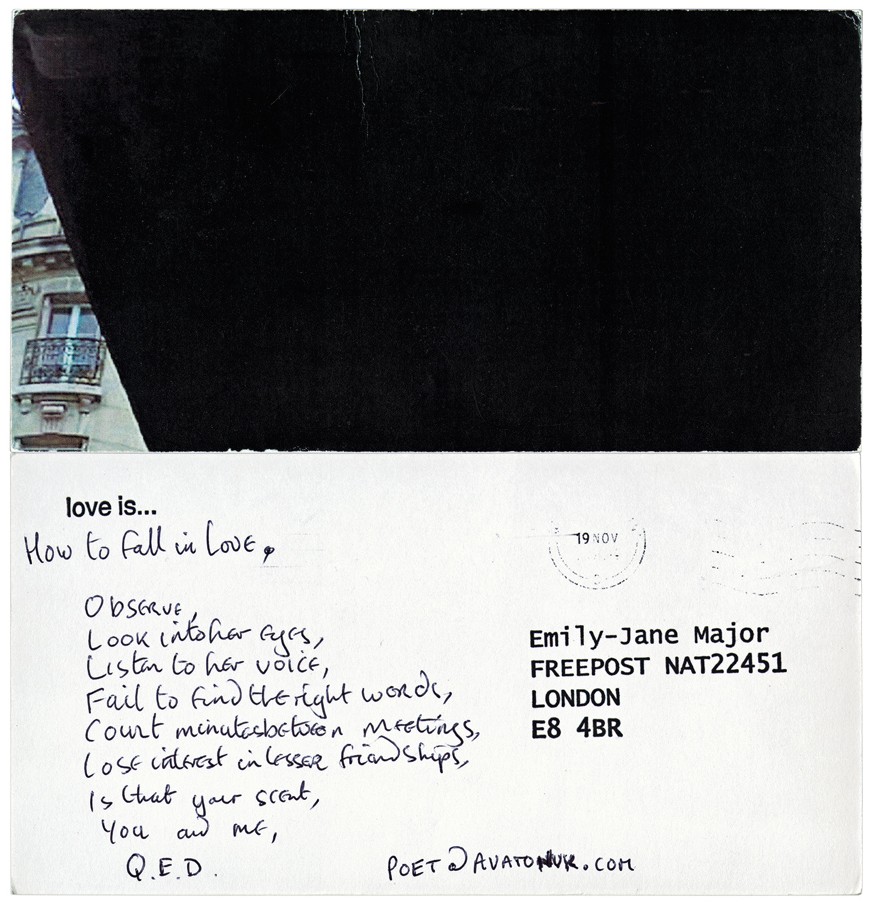 love is...
How to fall in Love.
19 NOV
Observe,
Look into her eyes,
Listen to her voice,
Fail to find the right words,
Count minutes between meetings,
Lose interest in lesser friendships,
Is that your scent,
You and me,
Q.E.D.
Emily-Jane Major
FREEPOST NAT22451
LONDON
E8 4BR